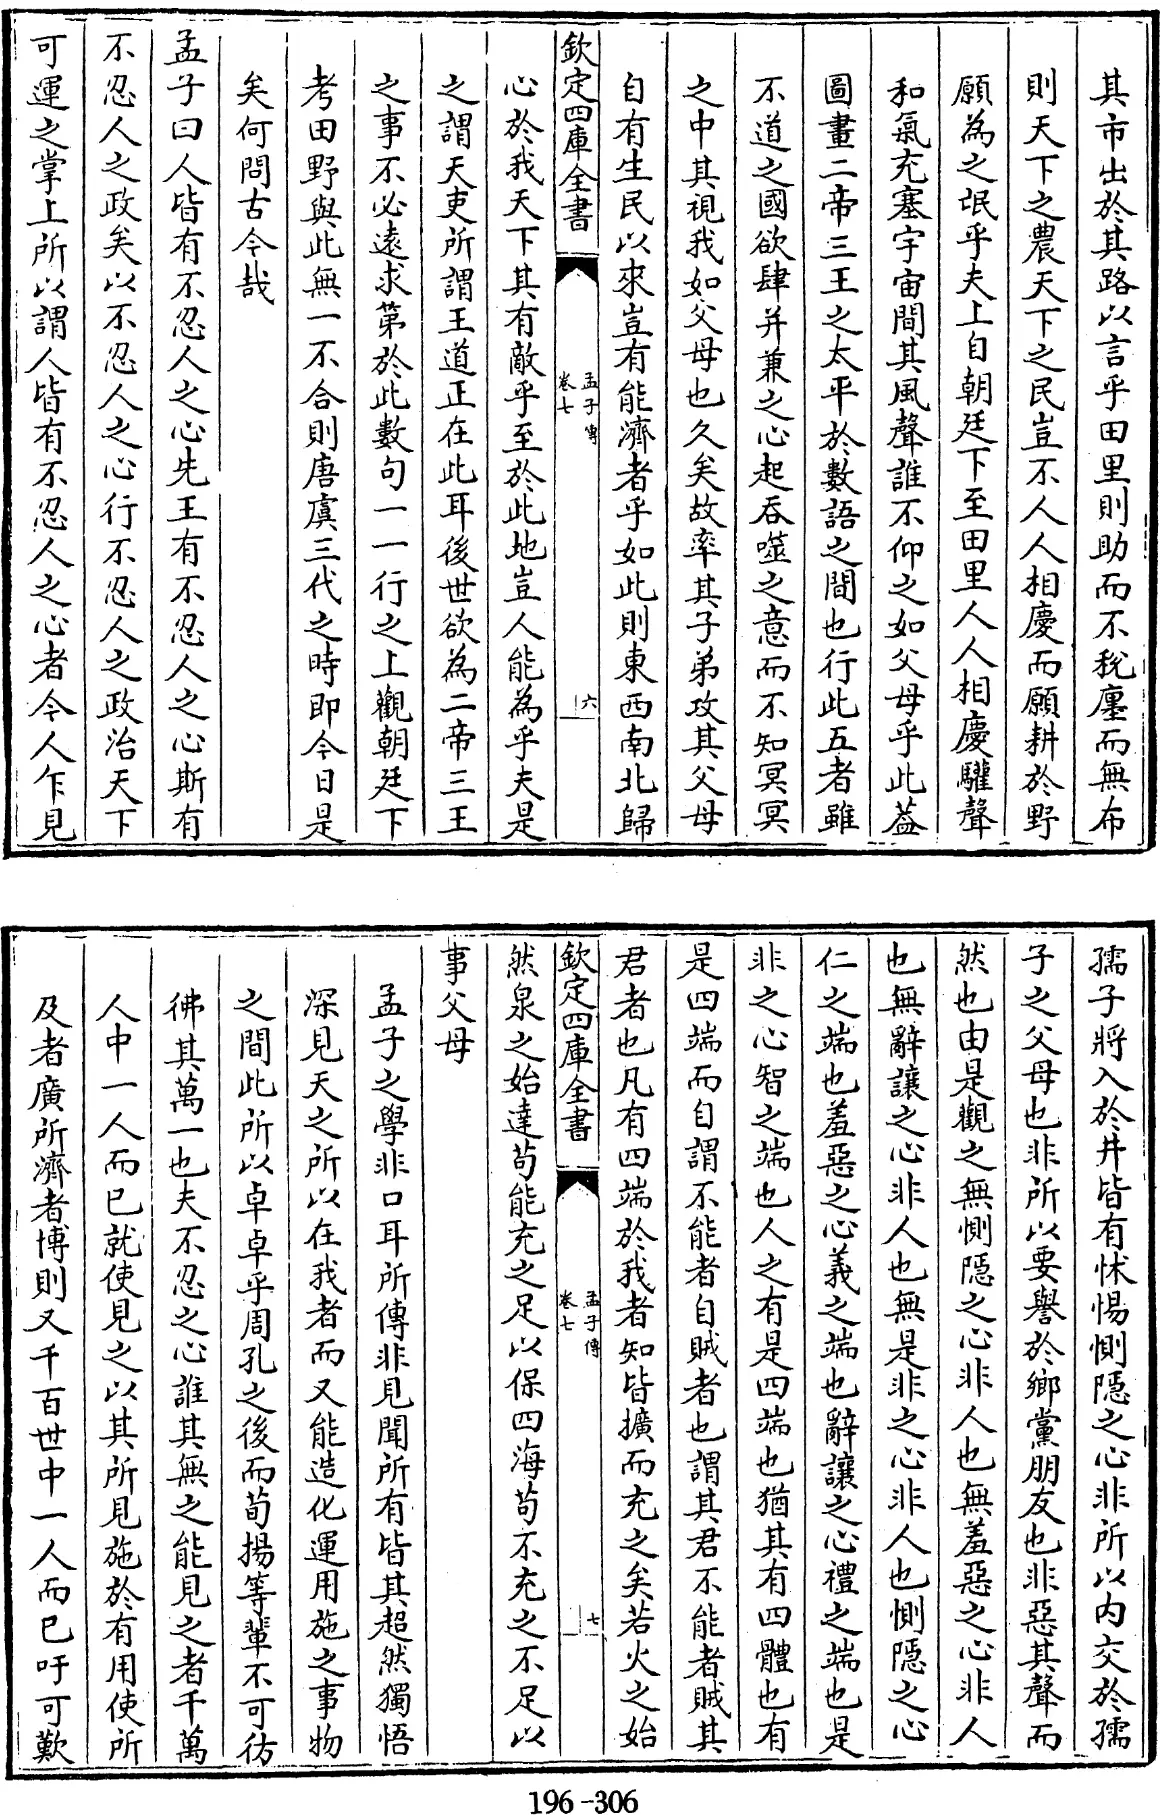 其市出於其路以言乎田里則助而不稅廛而無布
則天下之農天下之民豈不人人相慶而願耕於野
願為之氓乎夫上自朝廷下至田里人人相慶驩聲
和氣充塞宇宙間其風聲誰不仰之如父母乎此蓋
圖畫二帝三王之太平於數語之間也行此五者雖
不道之國欲肆并兼之心起吞噬之意而不知冥冥
之中其視我如父母也久矣故率其子弟攻其父母
自有生民以來豈有能濟者乎如此則東西南北歸
欽定四庫全書
孟子傳
卷七
六
心於我天下其有敵乎至於此地豈人能為乎夫是
之謂天吏所謂王道正在此耳後世欲為二帝三王
之事不必遠求第於此數句一一行之上觀朝廷下
考田野與此無一不合則唐虞三代之時即今日是
矣何問古今哉
孟子曰人皆有不忍人之心先王有不忍人之心斯有
不忍人之政矣以不忍人之心行不忍人之政治天下
可運之掌上所以謂人皆有不忍人之心者今人乍見
孺子將入於井皆有怵惕惻隠之心非所以内交於孺
子之父母也非所以要譽於鄉黨朋友也非惡其聲而
然也由是觀之無惻隠之心非人也無羞惡之心非人
也無辭讓之心非人也無是非之心非人也惻隠之心
仁之端也羞惡之心義之端也辭讓之心禮之端也是
非之心智之端也人之有是四端也猶其有四體也有
是四端而自謂不能者自賊者也謂其君不能者賊其
君者也凡有四端於我者知皆擴而充之矣若火之始
欽定四庫全書
孟子傳
卷七
七
然泉之始達苟能充之足以保四海苟不充之不足以
事父母
孟子之學非口耳所傳非見聞所有皆其超然獨悟
深見天之所以在我者而又能造化運用施之事物
之間此所以卓卓乎周孔之後而荀揚等輩不可彷
彿其萬一也夫不忍之心誰其無之能見之者千萬
人中一人而已就使見之以其所見施於有用使所
及者廣所濟者博則又千百世中一人而已吁可歎
196-306